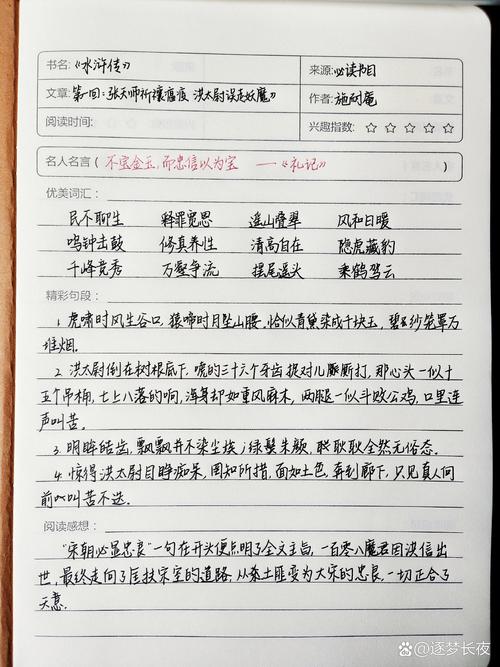 书名:《水浒传》 来源:必读书目
文章:第一回:张天师祈禳瘟疫 洪太尉误走妖魔》 作者:施耐庵
阅读时间: 兴趣指数:☆ ☆ ☆ ☆ ☆
名人名言( 不宝金玉,而忠信以为宝 —《礼记》 )
优美词汇:
民不聊生 释罪宽恩 遥山叠翠 风和日暖
鸣钟击鼓 修真养性 清高自在 隐虎藏豹
千峰竞秀 万壑争流 摆尾摇头 乘鹤驾云
精彩句段:
1. 虎啸时风生谷口,猿啼时月坠山腰.恰似青黛染成千块玉,碧纱笼罩万
堆烟.
2. 洪太尉倒在树根底下,唬的三十六个牙齿捉对儿厮打,那心头一似十
五个吊桶,七上八落的响,浑身却如重风麻木,两腿一似斗败公鸡,口里连
声叫苦.
3. 明眸皓齿,飘飘并不染尘埃;绿鬓朱颜,耿耿全然无俗态.
4. 惊得洪太尉目睁痴呆,罔知所措,面如土色,奔到廊下,只见真人向
前叫苦不迭.
阅读感想:
“宋朝必显忠良”一句在开头便点明了全文主旨,一百零八魔君因洪信出
世,最终走向了匡扶宋室的道路.从秦土匪变为大宋的忠良,一切正合了
天意.
百家号/逐梦长夜